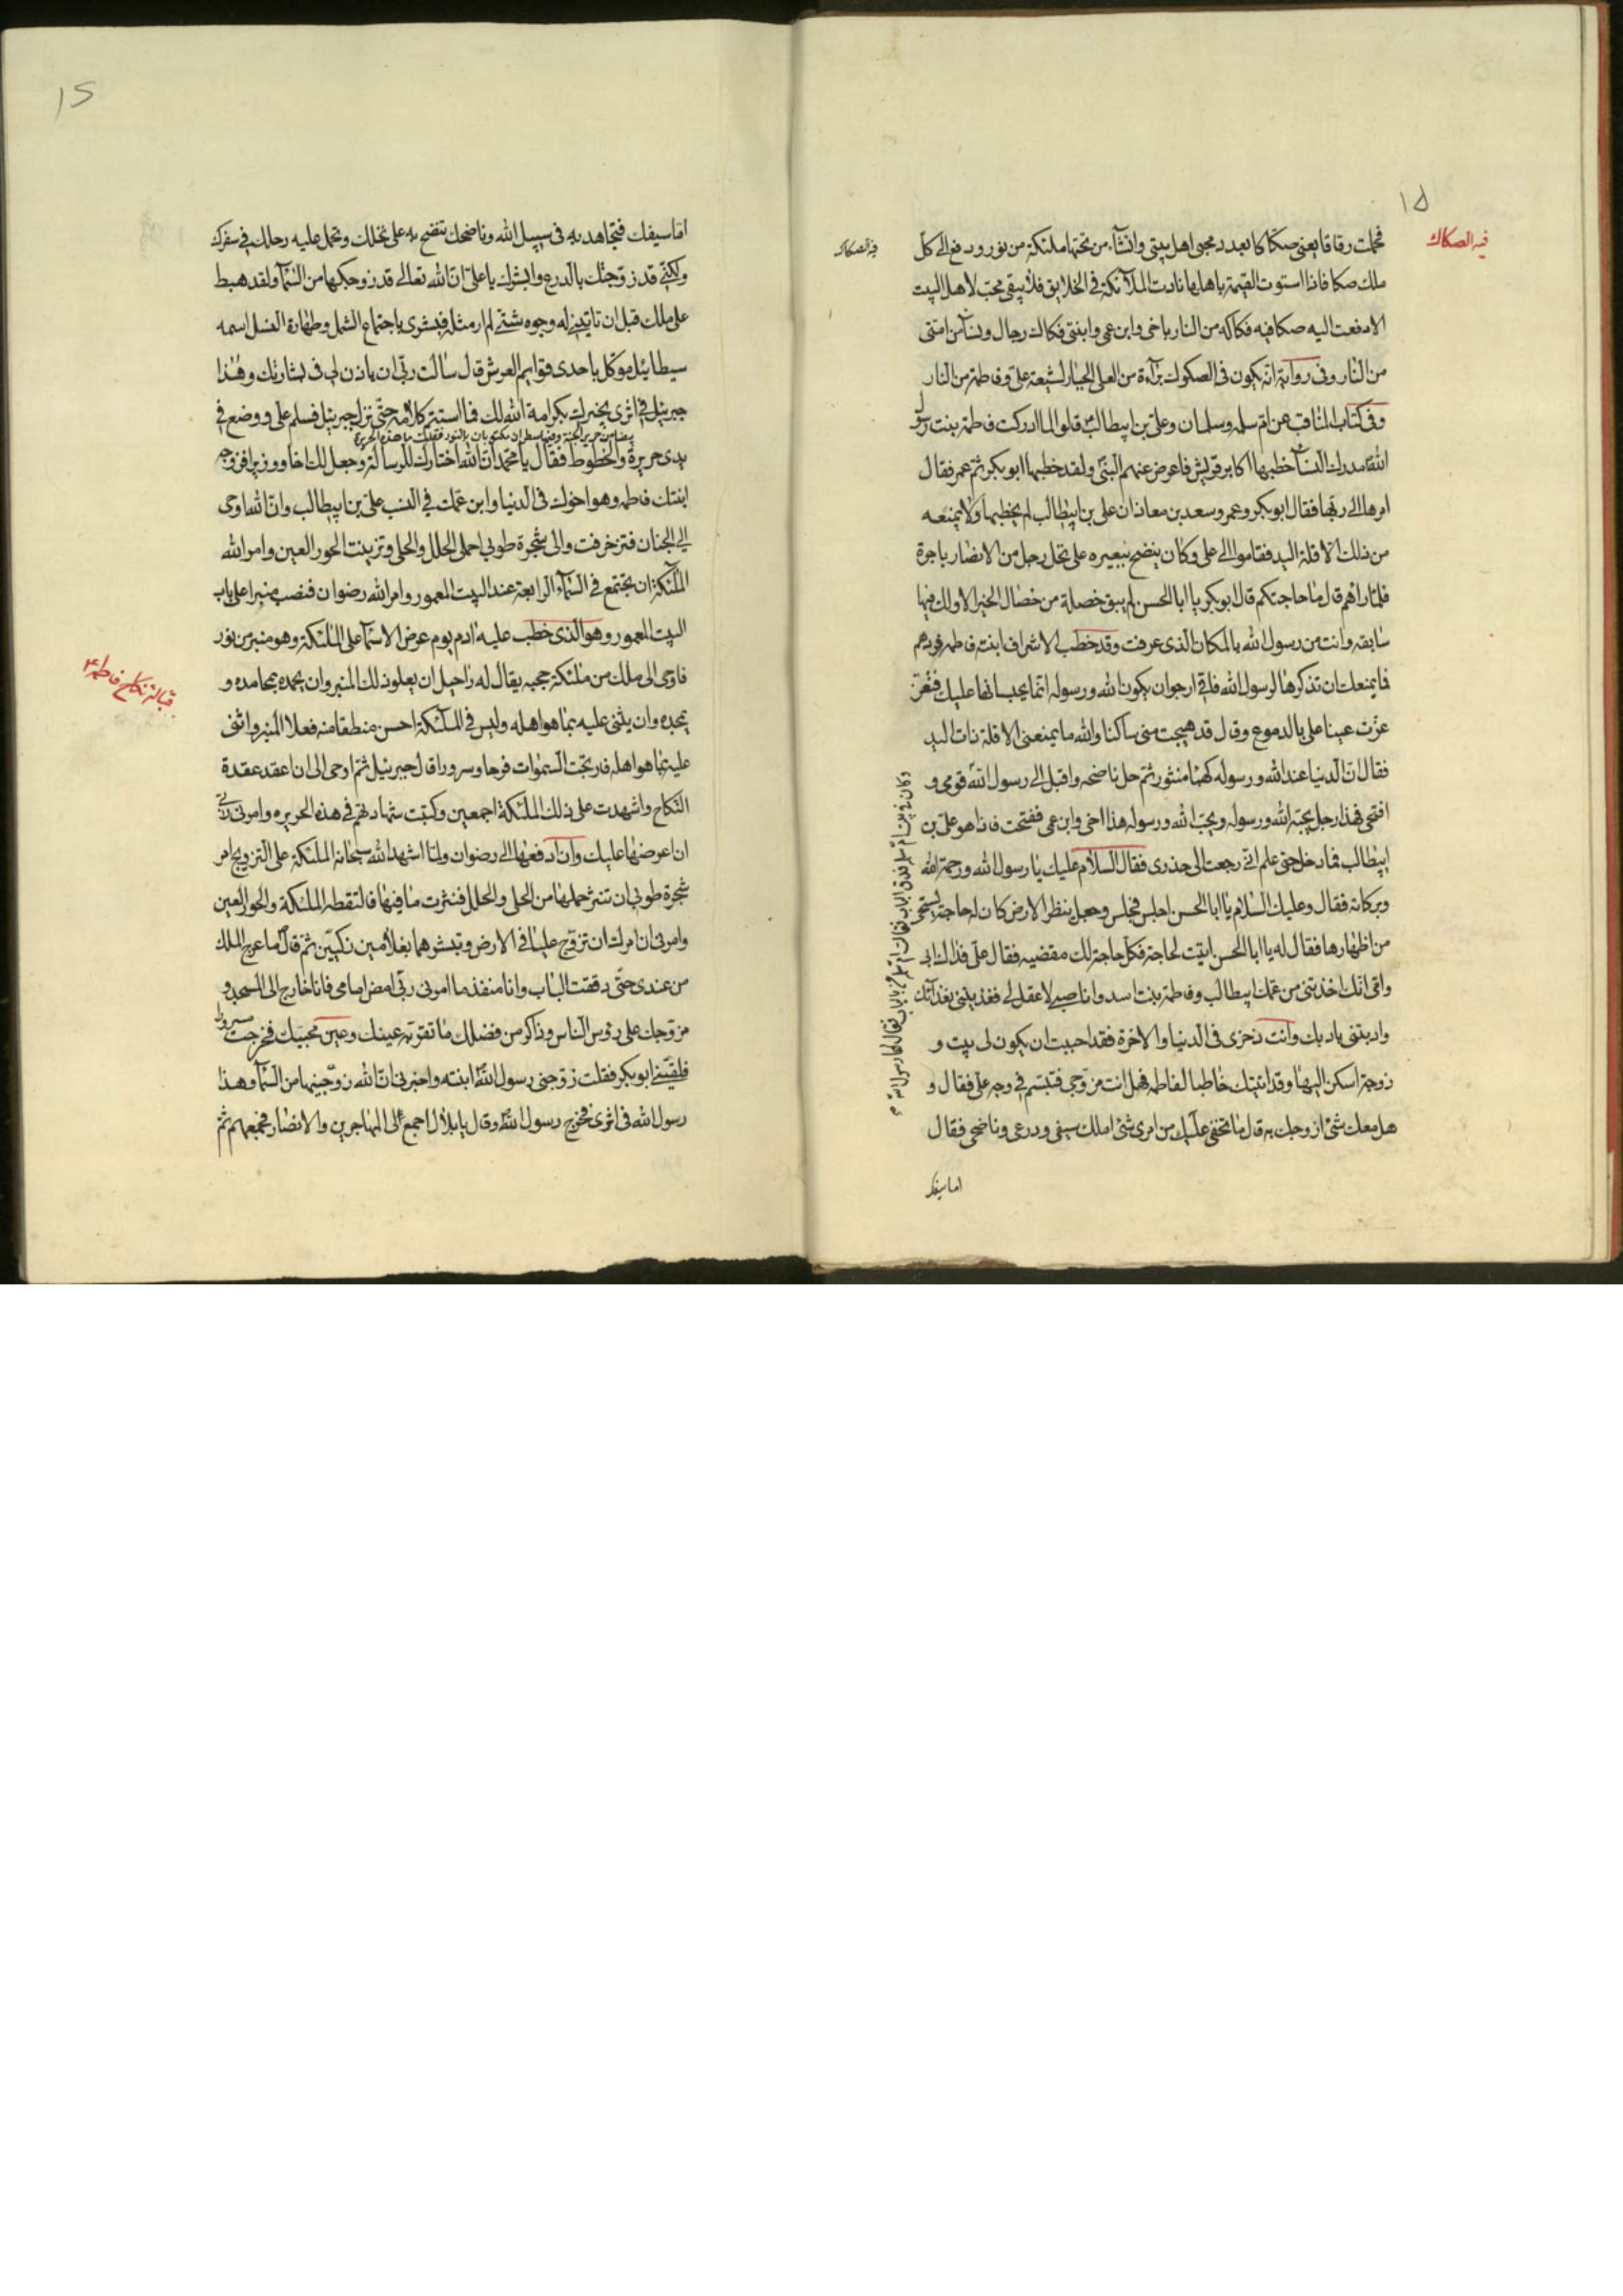 ١٥
فيه الصكاك
فحملت رقاقا يعنى صكاكا بعدد محبى اهل بيتى وانشاء من تحتها ملئكة من نور ودفع الى كل
ملك صكا فاذا استوت القيمة باهلها نادت الملائكة فى الخلايق فلا يبقى محب لاهل البيت
الا دفعت اليه صكا فيه فكاكه من النار باخى وابن عمى وابنتى فكاك رجال ونساء من امتى
من النار وفى رواية انه يكون فى الصكوك برآءة من العلى الجبار لشيعة على وفاطمة من النار
وفى كتاب المناقب عن ام سلمه وسلمان وعلى بن ابيطالب قالوا لما ادركت فاطمة بنت رسول
الله مدرك النساء خطبها اكابر قريش فاعرض عنهم النبى ولقد خطبها ابوبكر ثم عمر فقال
امرها الى ربها فقال ابوبكر وعمر وسعد بن معاذ ان على بن ابيطالب لم يخطبها ولا يمنعه
من ذلك الا قلة اليد فقاموا الى على وكان ينضح ببعيره على نخل رجل من الانصار باجرة
فلما راهم قال ما حاجتكم قال ابوبكر يا ابا الحسن لم يبق خصلة من خصال الخير الا ولك فيها
سابقه وانت من رسول الله بالمكان الذى عرفت وقد خطب الاشراف ابنته فاطمه فردهم
فما يمنعك ان تذكرها لرسول الله فانى ارجو ان يكون الله ورسوله انما يحبسانها عليك فتغر
غرت عينا على بالدموع وقال قد هيجت منى ساكنا والله ما يمنعنى الا قلة ذات اليد
فقال ان الدنيا عند الله ورسوله كهباء منثور ثم حل ناضحه واقبل الى رسول الله قومى و
افتحى فهذا رجل يحبه الله ورسوله ويحب الله ورسوله هذا اخى وابن عمى ففتحت فاذا هو على بن
ابيطالب فما دخل حتى علم انى رجعت الى خدرى فقال السلام عليك يا رسول الله ورحمة الله
وبركاته فقال وعليك السلام يا ابا الحسن اجلس فجلس وجعل ينظر الارض كان له حاجة يستحى
من اظهارها فقال له يا ابا الحسن اتيت لحاجة فكل حاجة لك مقضيه فقال على فداك ابى
وامى انك اخذتنى من عمك ابيطالب وفاطمة بنت اسد وانا صبى لا عقل لى فغذيتنى بغذائك
وادبتنى بادبك وانت ذخرى فى الدنيا والاخرة فقد احببت ان يكون لى بيت و
زوجة اسكن اليها وقد اتيتك خاطبا لفاطمه فهل انت مزوجى فتبسم فى وجه على فقال و
هل معك شئ ازوجك به قال ما تخفى عليك من امرى شئ املك سيفى ودرعى وناضحى فقال
اما سيفك
فيه الصكاك
وكان فى بيت ام سلمه فدق الباب فقالت ام سلمه من بالباب فقال لها رسول الله
١٥
اما سيفك فتجاهد به فى سبيل الله وناضحك تنضح به على نخلك وتحمل عليه رحلك فى سفرك
ولكنى قد زوجتك بالدرع وابشرك يا على ان الله تعالى قد زوجكها من السماء ولقد هبط
على ملك قبل ان تاتينى له وجوه شتى لم ار مثله فبشرى باجتماع الشمل وطهارة النسل اسمه
سيطائيل موكل باحدى قوايم العرش قال سالت ربى ان ياذن لى فى بشارتك وهذا
جبرئيل فى اثرى يخبرك بكرامة الله لك فما استتم كلامه حتى نزل جبرئيل فسلم على ووضع فى
بيضا من حرير الجنة وفيها سطران مكتوبان بالنور فقلت ما هذه الحريرة
يدى حريرة والخطوط فقال يا محمد ان الله اختارك للرسالة وجعل لك اخا ووزيرا فزوجه
ابنتك فاطمه وهو اخوك فى الدنيا وابن عمك فى النسب على بن ابيطالب وان الله اوحى
الى الجنان فتزخرفت والى شجرة طوبى احملى الحلل والحلى وتزينت الحور العين وامر الله
الملئكة ان تجتمع فى السماء الرابعة عند البيت المعمور وامر الله رضوان فنصب منبرا على باب
البيت المعمور وهو الذى خطب عليه ادم يوم عرض الاسما على الملئكة وهو منبر من نور
فاوحى الى ملك من ملئكة حجبه يقال له راحيل ان يعلو ذلك المنبر وان يحمده بمحامده و
يمجده وان يثنى عليه بما هو اهله وليس فى الملئكة احسن منطقا منه فعلا المنبر واثنى
عليه بما هو اهله فارتجت السموات فرحا وسرورا قال جبرئيل ثم اوحى الى ان اعقد عقدة
النكاح واشهدت على ذلك الملئكة اجمعين وكتبت شهادتهم فى هذه الحريره وامرنى ربى
ان اعرضها عليك وان ادفعها الى رضوان ولما اشهد الله سبحانه الملئكة على التزويج امر
شجرة طوبى ان تنثر حملها من الحلى والحلل فنثرت ما فيها فالتقطه الملئكة والحور العين
وامرنى ان امرك ان تزوج عليا فى الارض وتبشرهما بغلامين زكيين ثم قال ما عرج الملك
من عندى حتى دققت الباب وانا منفذ ما امرنى ربى امض امامى فانا خارج الى المسجد و
مزوجك على رؤس الناس وذاكر من فضلك ما تقر به عينك وعين محبيك فخرجت مسرورا
فلقينى ابوبكر فقلت زوجنى رسول الله ابنته واخبرنى ان الله زوجنيها من السماء وهذا
رسول الله فى اثرى فخرج رسول الله وقال يا بلال اجمع الى المهاجرين والانصار فجمعهم ثم
قبالة نكاح فاطمة